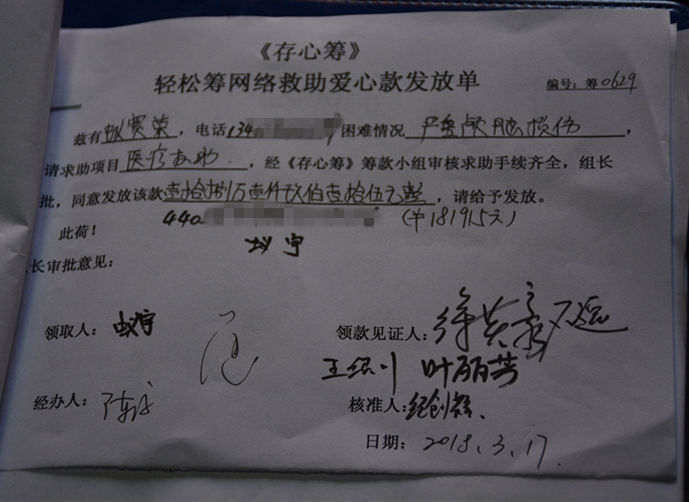 《存心筹》
轻松筹网络救助爱心款发放单
编号：筹0629
兹有蚁赛荣，电话134 困难情况 严重颅脑损伤，
请求助项目医疗救助，经《存心筹》筹款小组审核求助手续齐全，组长
批，同意发放该款壹拾捌万壹仟玖佰壹拾伍元整，请给予发放。
此荷！ 440 (181915元)
蚁宇
长审批意见：
领取人：蚁宇 领款见证人：
王绍川 叶丽芳
经办人： 核准人：纪创
日期：2018.3.17.